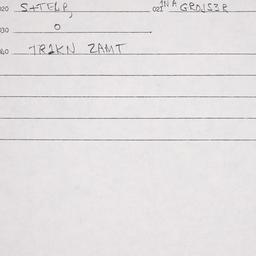 020 S+TELP, 021 INA GROJS3R
030 O
040 TR1KN ZAMT